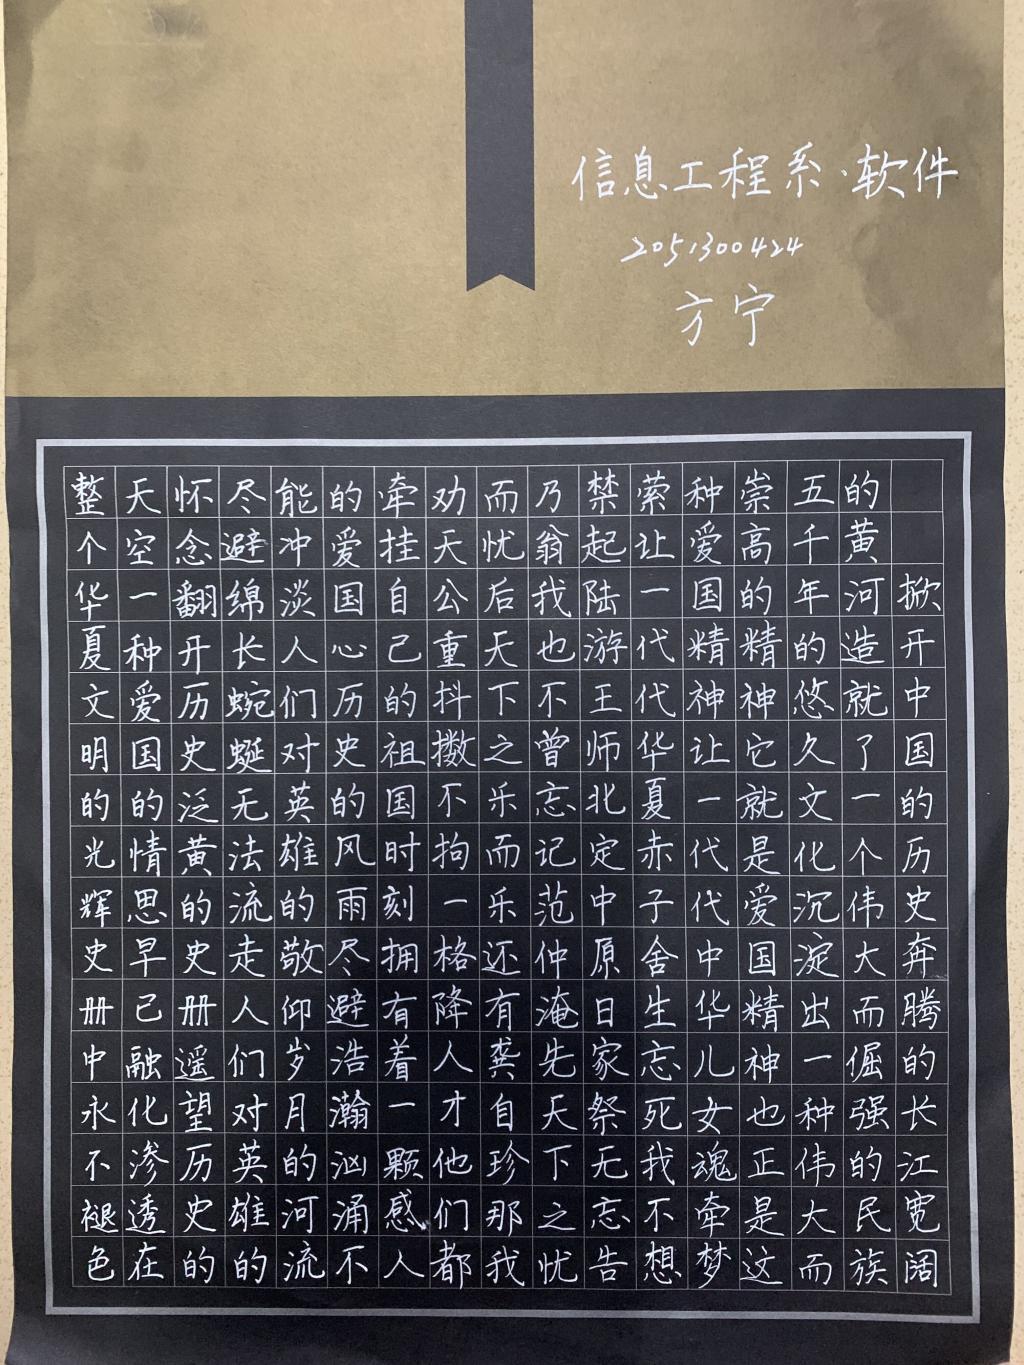 信息工程系·软件
2051300424
方宁
掀开中国的历史奔腾的长江宽阔
的黄河造就了一个伟大而倔强的民族
五千年的悠久文化沉淀出一种伟大而
崇高的精神它就是爱国精神也正是这
种爱国精神让一代代中华儿女魂牵梦
萦让一代代华夏赤子舍生忘死我不想
禁起陆游王师北定中原日家祭无忘告
乃翁我也不曾忘记范仲淹先天下之忧
而忧后天下之乐而乐还有龚自珍那我
劝天公重抖擞不拘一格降人才他们都
牵挂自己的祖国时刻拥有着一颗感人
的爱国心历史的风雨尽避浩瀚汹涌不
能冲淡人们对英雄的敬仰岁月的河流
尽避绵长蜿蜒无法流走人们对英雄的
怀念翻开历史泛黄的史册遥望历史的
天空一种爱国的情思早已融化渗透在
整个华夏文明的光辉史册中永不褪色